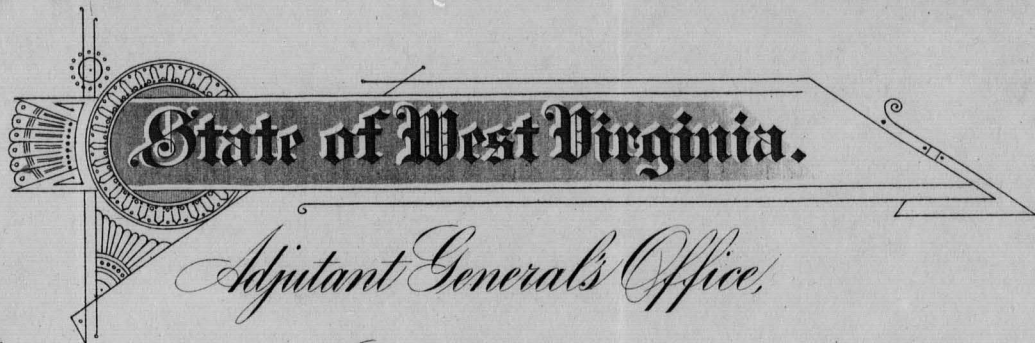 State of West Virginia.
Adjutant General's Office,